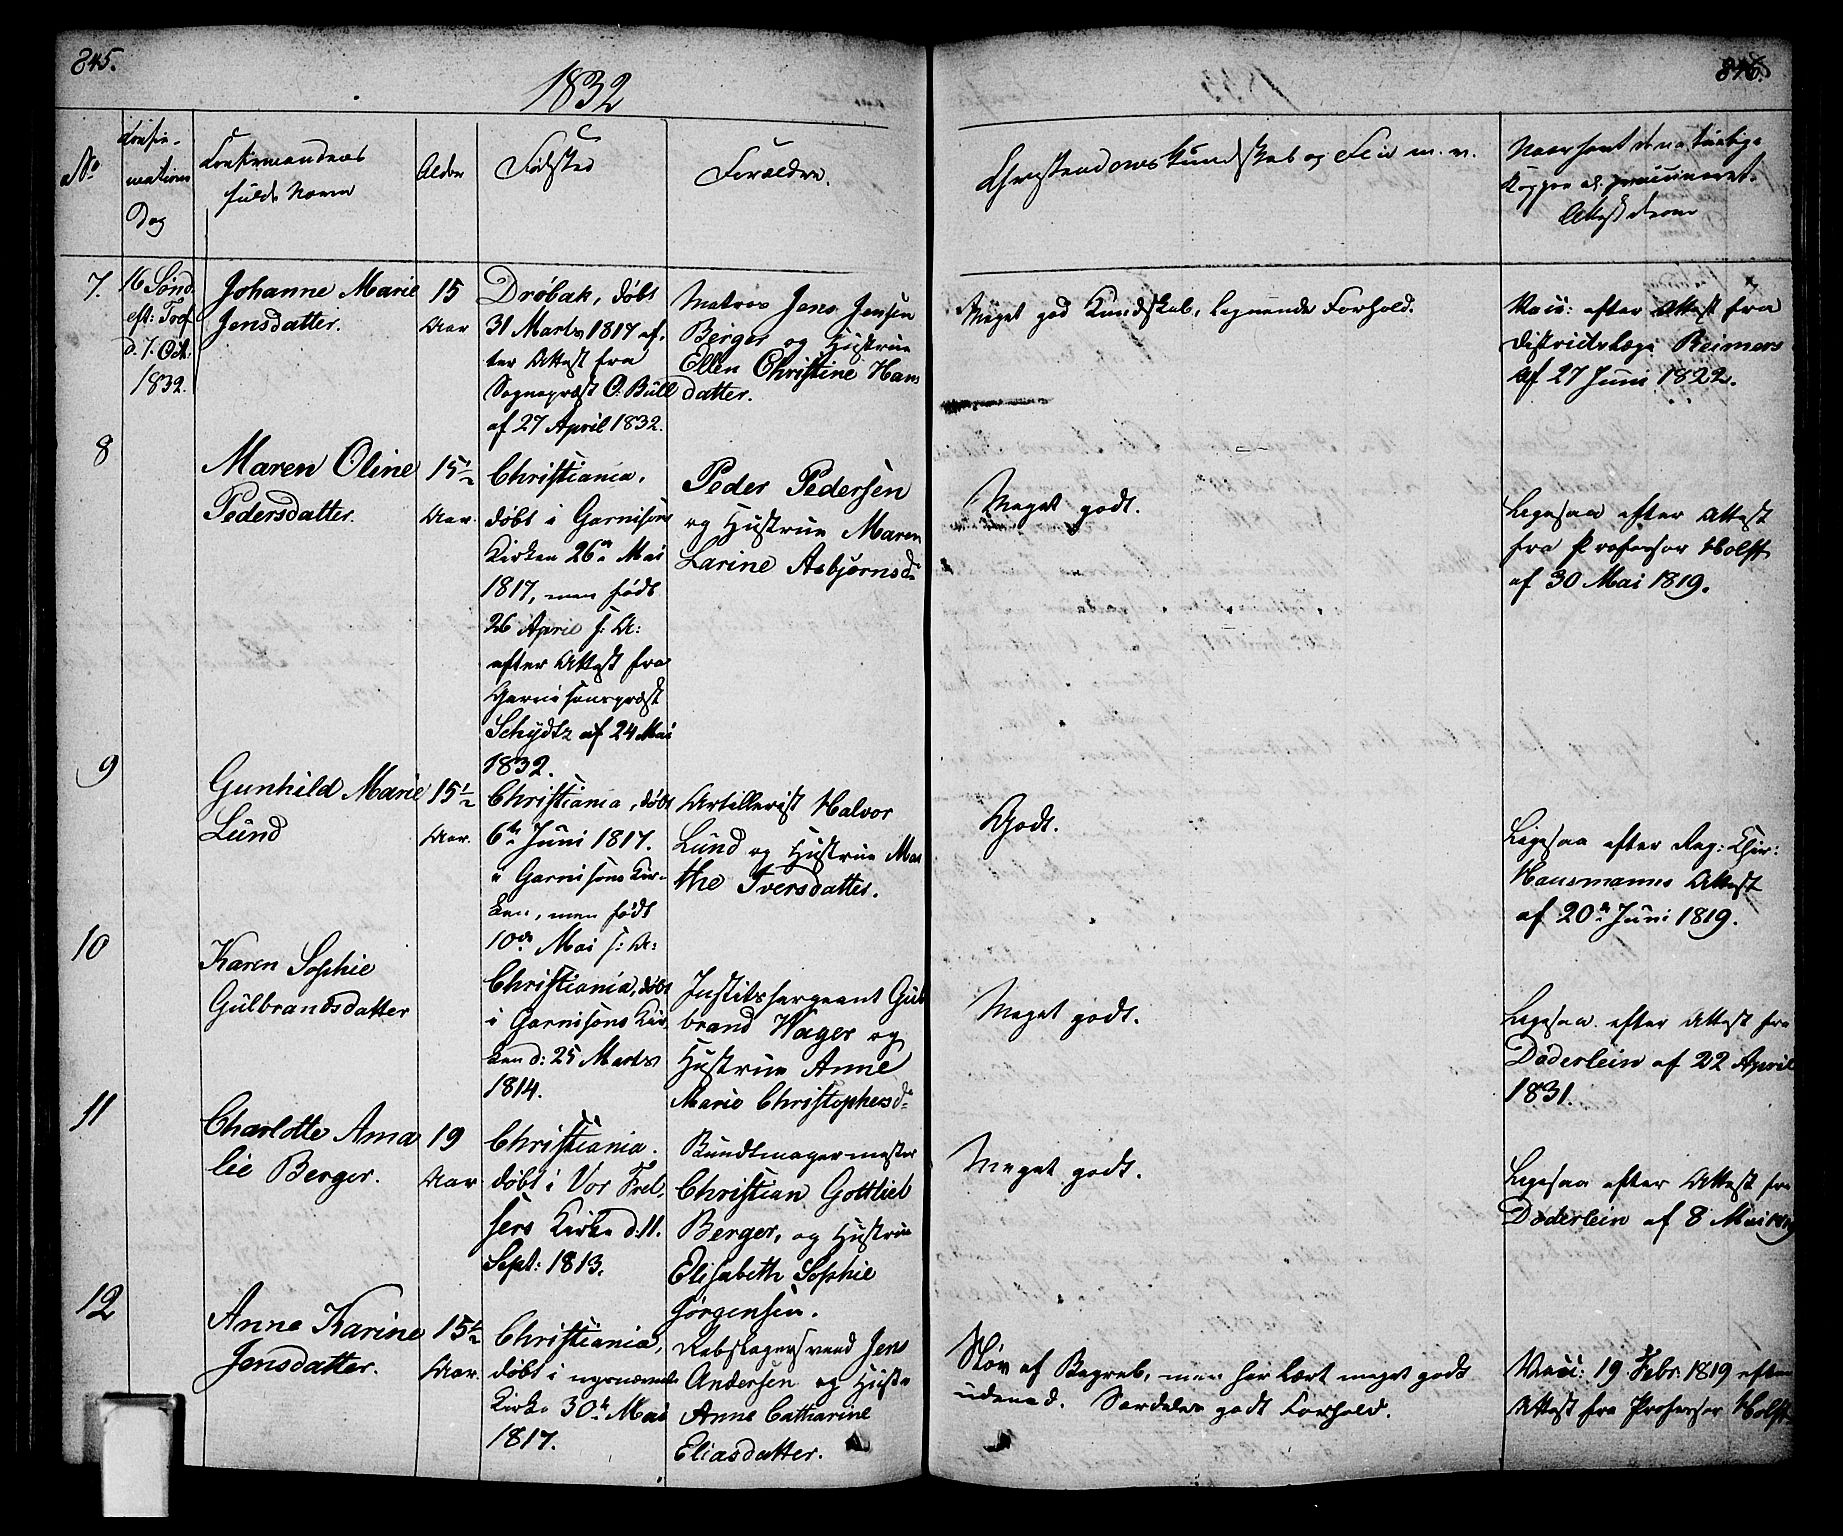 845.
1832
No
Confir-
mations
Dag
Confirmandens
fulde Navn
Alder
Fødsted
Forældre.
7.
16 Sønd.
eft: Tref.
d. 7. Oct.
1832.
Johanne Marie
Jensdatter.
15
Aar
Drøbak, døbt
31 Marts 1817 ef-
ter Attest fra
Sognepræst O. Büll
af 27 April 1832.
Matros Jens Jensen
Berger og Hustrue
Ellen Christine Hans
datter.
8
Maren Oline
Pedersdatter.
15½
Aar.
Christiania,
døbt i Garnisons
Kirken 26de Mai
1817, men født
26 April s: A:
efter Attest fra
Garnisonspræst
Schydtz af 24 Mai
1832.
Peder Pedersen
og Hustrue Maren
Larine Asbjørnsdr
9
Gunhild Marie
Lund
15½
Aar.
Christiania, døbt
6te Juni 1817.
i Garnisons Kir-
ken, men født
10de Mai s: A:
Artillerist Halvor
Lund og Hustrue Mar
the Iversdatter.
10
Karen Sophie
Gulbrandsdatter
Christiania, døbt
i Garnisons Kir
ken d: 25 Marts
1814.
Justitssergeant Gul
brand Wager og
Hustrue Anne
Marie Christophersdr
11
Charlotte Ama
lie Berger.
19
Aar
Christiania.
døbt i Vor Frel,
sers Kirke d. 11.
Sept: 1813.
Bundtmagermester
Christian Gottlieb
Berger, og Hustrue
Elisabeth Sophie
Jørgensen.
12
Anne Karine
Jensdatter.
15½
Aar.
Christiania,
døbt i nysnævnte
Kirke 30te Mai
1817.
Rebslagersvend Jens
Andersen og Hustr
Anne Catharine
Eliasdatter.
846.
Christendomskundskab og Flid m. v.
Naar havt de naturlige
Kopper el. vaccineret.
Attest derom
Meget god Kundskab, lignende Forhold.
Vacc: efter Attest fra
Districtslæge Reimers
af 27 Juni 1822.
Meget godt.
Ligesaa efter Attest
fra Professor Holst
af 30 Mai 1819.
Godt.
Ligesaa efter Reg: Chir:
Hausmanns Attest
af 20de Juni 1819.
Meget godt.
Ligesaa efter Attest fra
Döderlein af 22 April
1831.
Meget godt.
Ligesaa efter Attest fra
Döderlein af 8 Mai 1819
Sløv af Begreb, men har lært meget godt
udenad. Særdeles godt Forhold.
Vacc: 19 Febr: 1819 efter
Attest fra Professor Holst